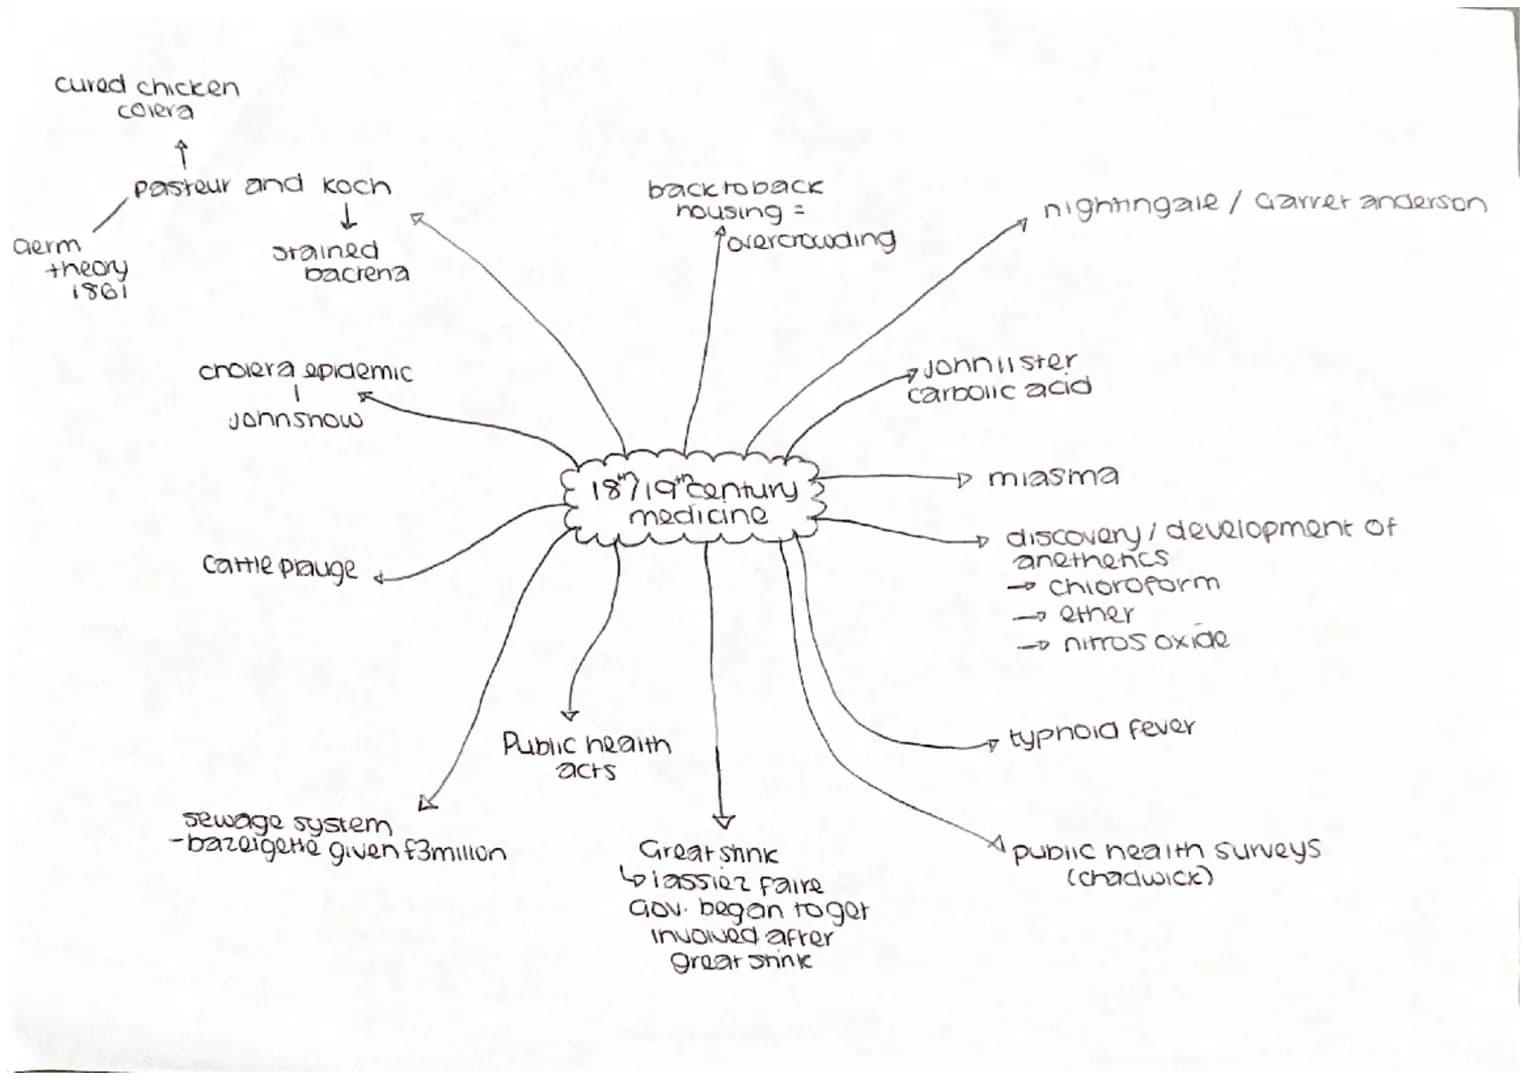 cured chicken
colera
Pasteur and Koch
Germ
theory
1861
stained
bacteria
back to back
housing =
overcrowding
nightingale / Garret anderson
cholera epidemic
John snow
John lister
carbolic acid
18th/19th century
medicine
miasma
discovery / development of
anethetics
→ chloroform
→ ether
→ nitros oxide
Cattle plauge
typhoid fever
Public health
acts
sewage system
- bazelgette given £3 million
Great stink
↳ lassiez faire
Gov. began to get
involved after
great stink
public health surveys
(chadwick)